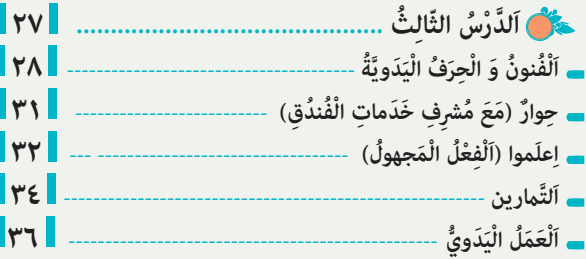 اَلدَّرْسُ الثّالِثُ ............................................ ٢٧
اَلْفُنونُ وَ الْحِرَفُ الْیَدَویَّةُ ---------------------------------------- ٢٨
حِوارٌ (مَعَ مُشرِفِ خَدَماتِ الْفُندُقِ) --------------------------- ٣١
اِعلَموا (اَلْفِعْلُ الْمَجهولُ) ---------------------------------- --- ٣٢
اَلتَّمارین ------------------------------------------------------------ ٣٤
اَلْعَمَلُ الْیَدَویُّ ---------------------------------------------------- ٣٦